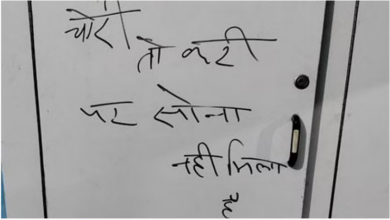 चोरी
तो करी
पर सोना
नही मिला
है